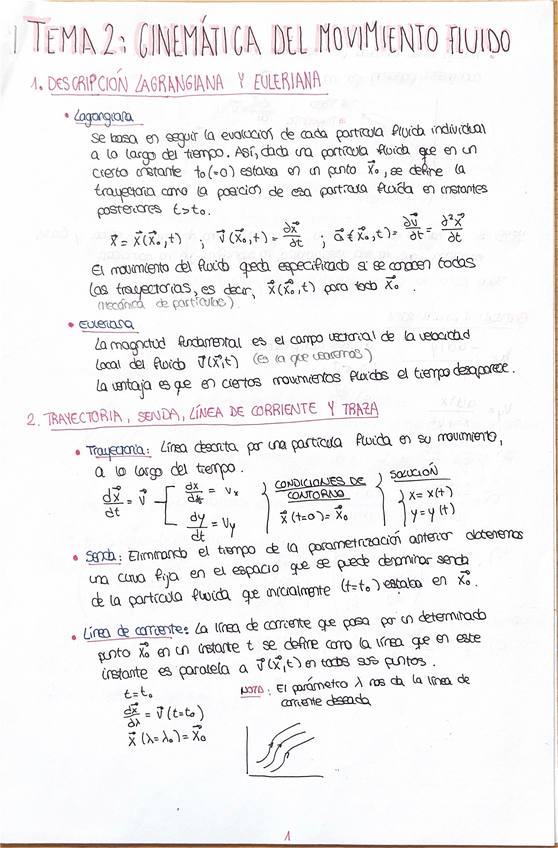 TEMA 2: CINEMÁTICA DEL MOVIMIENTO FLUIDO
1. DESCRIPCIÓN LAGRANGIANA Y EULERIANA
• Lagangiana
Se basa en seguir la evolución de cada partícula fluida individual
a lo largo del tiempo. Así, dada una partícula fluida que en un
cierto instante t₀(=0) estaba en un punto x⃗₀, se define la
trayectoria como la posición de esa partícula fluida en instantes
posteriores t>t₀.
x⃗ = x⃗(x⃗₀,t) ; v⃗(x⃗₀,t) = ∂x⃗/∂t ; a⃗(x⃗₀,t) = ∂v⃗/∂t = ∂²x⃗/∂t
El movimiento del fluido queda especificado si se conocen todas
las trayectorias, es decir, x⃗(x⃗₀,t) para todo x⃗₀.
(Mecánica de partículas)
• Euleriana
La magnitud fundamental es el campo vectorial de la velocidad
local del fluido v⃗(x⃗,t) (Es la que usaremos)
La ventaja es que en ciertos movimientos fluidos el tiempo desaparece.
2. TRAYECTORIA, SENDA, LÍNEA DE CORRIENTE Y TRAZA
• Trayectoria: Línea descrita por una partícula fluida en su movimiento,
a lo largo del tiempo.
dx⃗/dt = v⃗ dx/dt = vx CONDICIONES DE CONTORNO SOLUCIÓN
dy/dt = vy x⃗(t=0) = x⃗₀ x = x(t)
y = y(t)
• Senda: Eliminando el tiempo de la parametrización anterior obtenemos
una curva fija en el espacio que se puede denominar senda
de la partícula fluida que inicialmente (t=t₀) estaba en x⃗₀.
• Línea de corriente: La línea de corriente que pasa por un determinado
punto x⃗₀ en un instante t se define como la línea que en este
instante es paralela a v⃗(x⃗,t) en todos sus puntos.
t=t₀ NOTA: El parámetro λ nos da la línea de
corriente deseada
dx⃗/dλ = v⃗(t=t₀)
x⃗(λ=λ₀) = x⃗₀
1